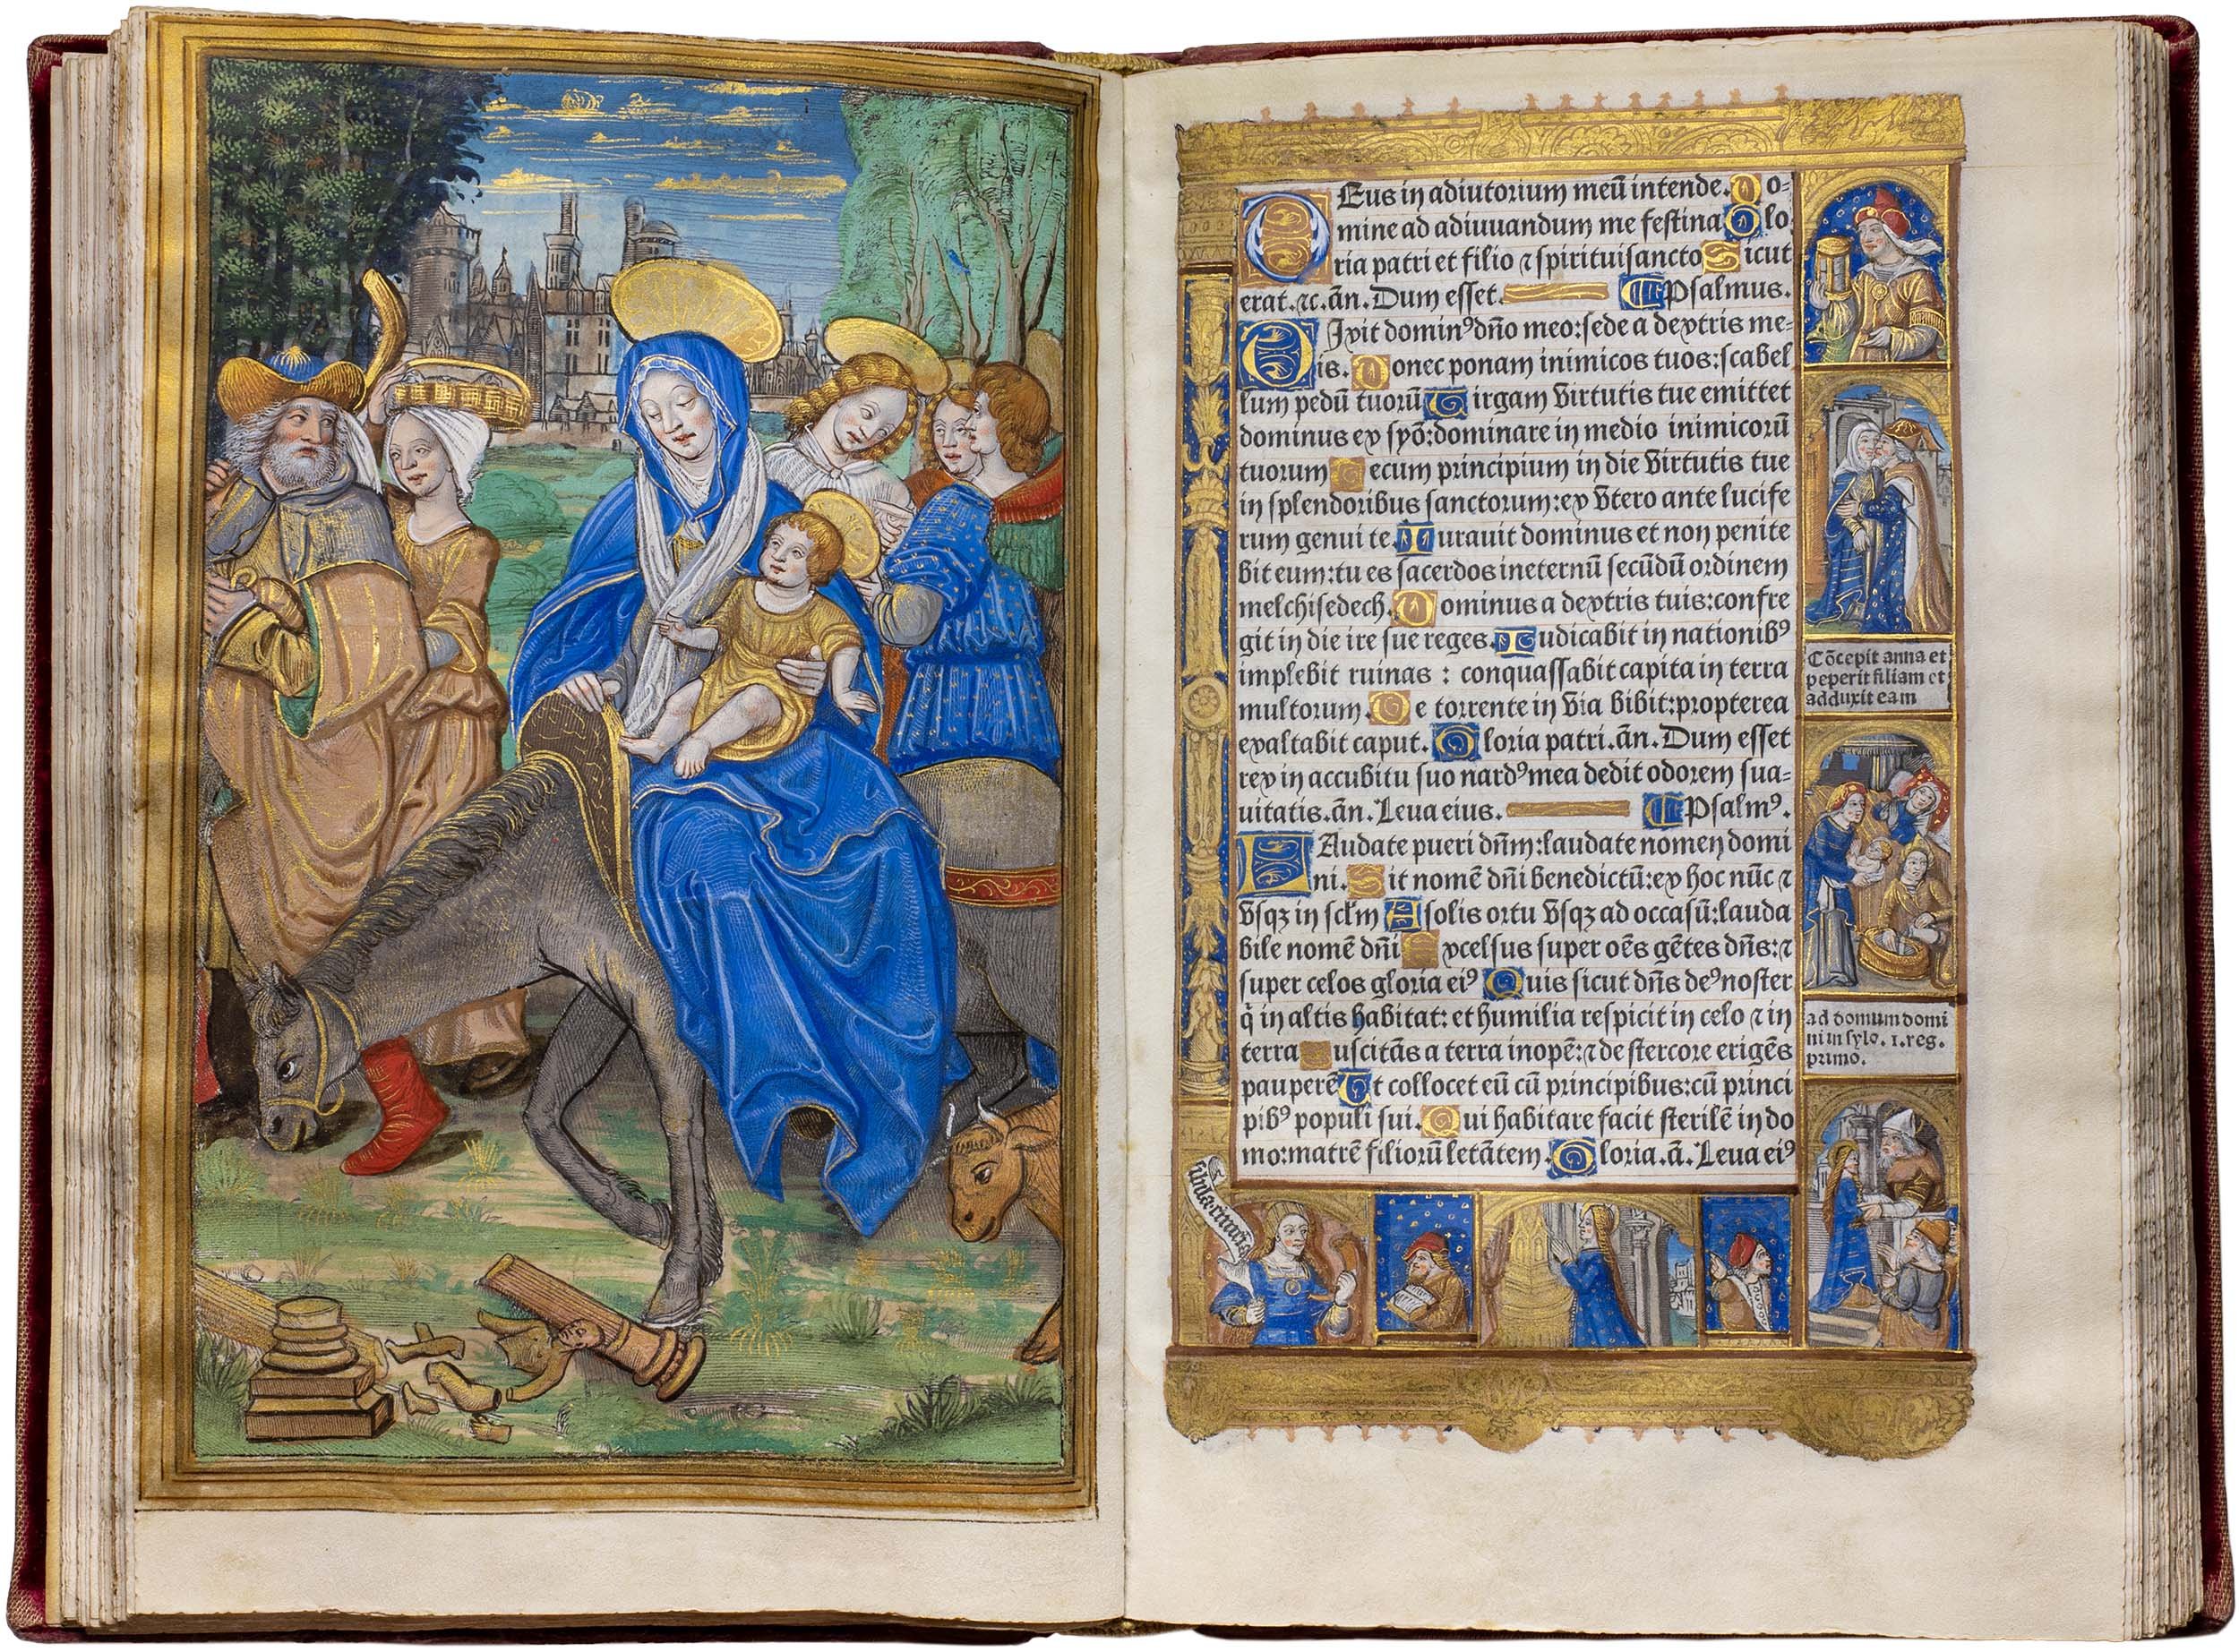 DEus in adiutorium meū intende. Do-
mine ad adiuuandum me festina Glo
ria patri et filio ⁊ spiritui sancto Sicut
erat. ⁊c. añ. Dum esset. Psalmus.
DIxit dominꝰ dño meo: sede a dextris me-
is. Donec ponam inimicos tuos: scabel
lum pedū tuorū Uirgam virtutis tue emittet
dominus ex syō: dominare in medio inimicorū
tuorum Tecum principium in die virtutis tue
in splendoribus sanctorum: ex vtero ante lucife
rum genui te. Iurauit dominus et non penite
bit eum: tu es sacerdos ineternū secūdū ordinem
melchisedech. Dominus a dextris tuis: confre
git in die ire sue reges. Iudicabit in nationibꝰ
implebit ruinas : conquassabit capita in terra
multorum. De torrente in via bibit: propterea
exaltabit caput. Gloria patri. añ. Dum esset
rex in accubitu suo nardꝰ mea dedit odorem sua-
uitatis. añ. Leua eius. Psalmꝰ.
LAudate pueri dñm: laudate nomen domi
ni. Sit nomē dñi benedictū: ex hoc nūc ⁊
vsqꝫ in sclm A solis ortu vsqꝫ ad occasū: lauda
bile nomē dñi Excelsus super oēs gētes dñs: ⁊
super celos gloria eiꝰ Quis sicut dñs deꝰ noster
q̇ in altis habitat: et humilia respicit in celo ⁊ in
terra Suscitās a terra inopē: ⁊ de stercore erigēs
pauperē Ut collocet eū cū principibus: cū princi
pibꝰ populi sui. Qui habitare facit sterilē in do
mo: matrē filiorū letātem. Gloria. ā. Leua eiꝰ
Cōcepit anna et
peperit filiam et
adduxit eam
ad domum domi
ni in sylo. 1. reg.
primo.